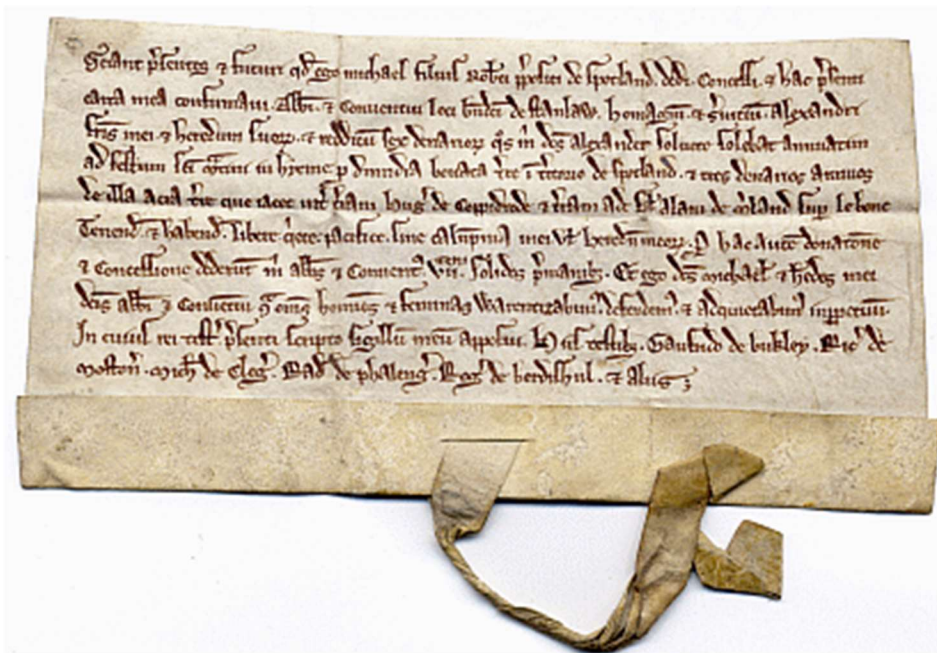 Sciant p̄sentes & futuri qd̄ ego michael filius Rob̄ti p̄positi de spotland. dedi. Concessi. & hac p̄senti
carta mea confirmaui. Abb̄i. & Conuentui loci bn̄dicti de stanlaw. homagiū. & s̄uiciū. alexandri
fr̄is mei & heredum suorꝝ. & redditū sex denariorꝝ q̄s m̄ dc̄s alexander soluere solebat annuatim
ad festum sc̄i m̄tini in hyeme p dimidia bouata t̄re ī t̄ritorio de spotland. & tres denarios annuos
de illa acra t̄re que iacet int̄ t̄ram hug̅ de & t̄ram ad. fil̄ alani de m̄land sup le
Tenend̄. & habend̄. libere. q̄ete. pacifice. sine calūpnia mei ul̄ heredū meorꝝ. P hac autē donatone
& Concessione dederunt m̄ abb̄s & Conuent̄ solidos p̄manibꝫ. Et ego dc̄s michael̄ & h̄edes mei
dc̄is abb̄i & Conuentui ꝯ̄ om̄s homines & feminas Warentizabimꝰ. defendemꝰ. & adquietabimꝰ inppetuū.
In cuius rei test̄ p̄senti scripto sigillū meū apposui. Hiis testibꝫ. Gaufrid̄ de bukley. Ric̄ de
moston̄. mich̄ de Cleg̅. Rad̄ de phaleng̅. Rog̅ de & aliis ;